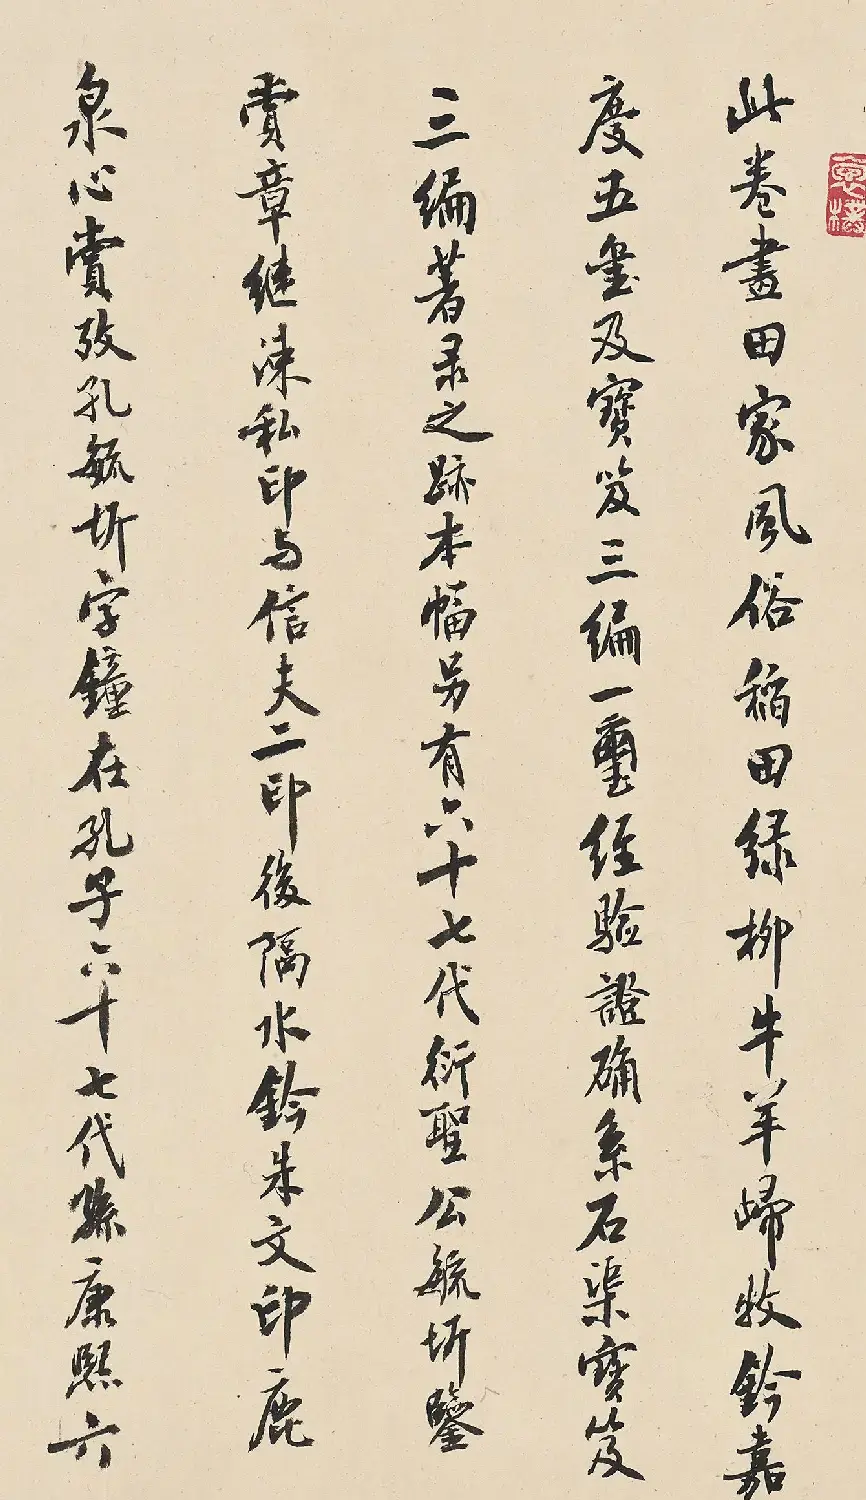 此卷畫田家風俗稻田绿柳牛羊歸牧鈐嘉
慶五璽及寶笈三编一璽经驗證确系石渠寶笈
三编著录之跡本幅另有六十七代衍聖公毓圻鑒
賞章继涑私印与信夫二印後隔水鈐朱文印鹿
泉心賞攷孔毓圻字鐘在孔子六十七代孫康熙六